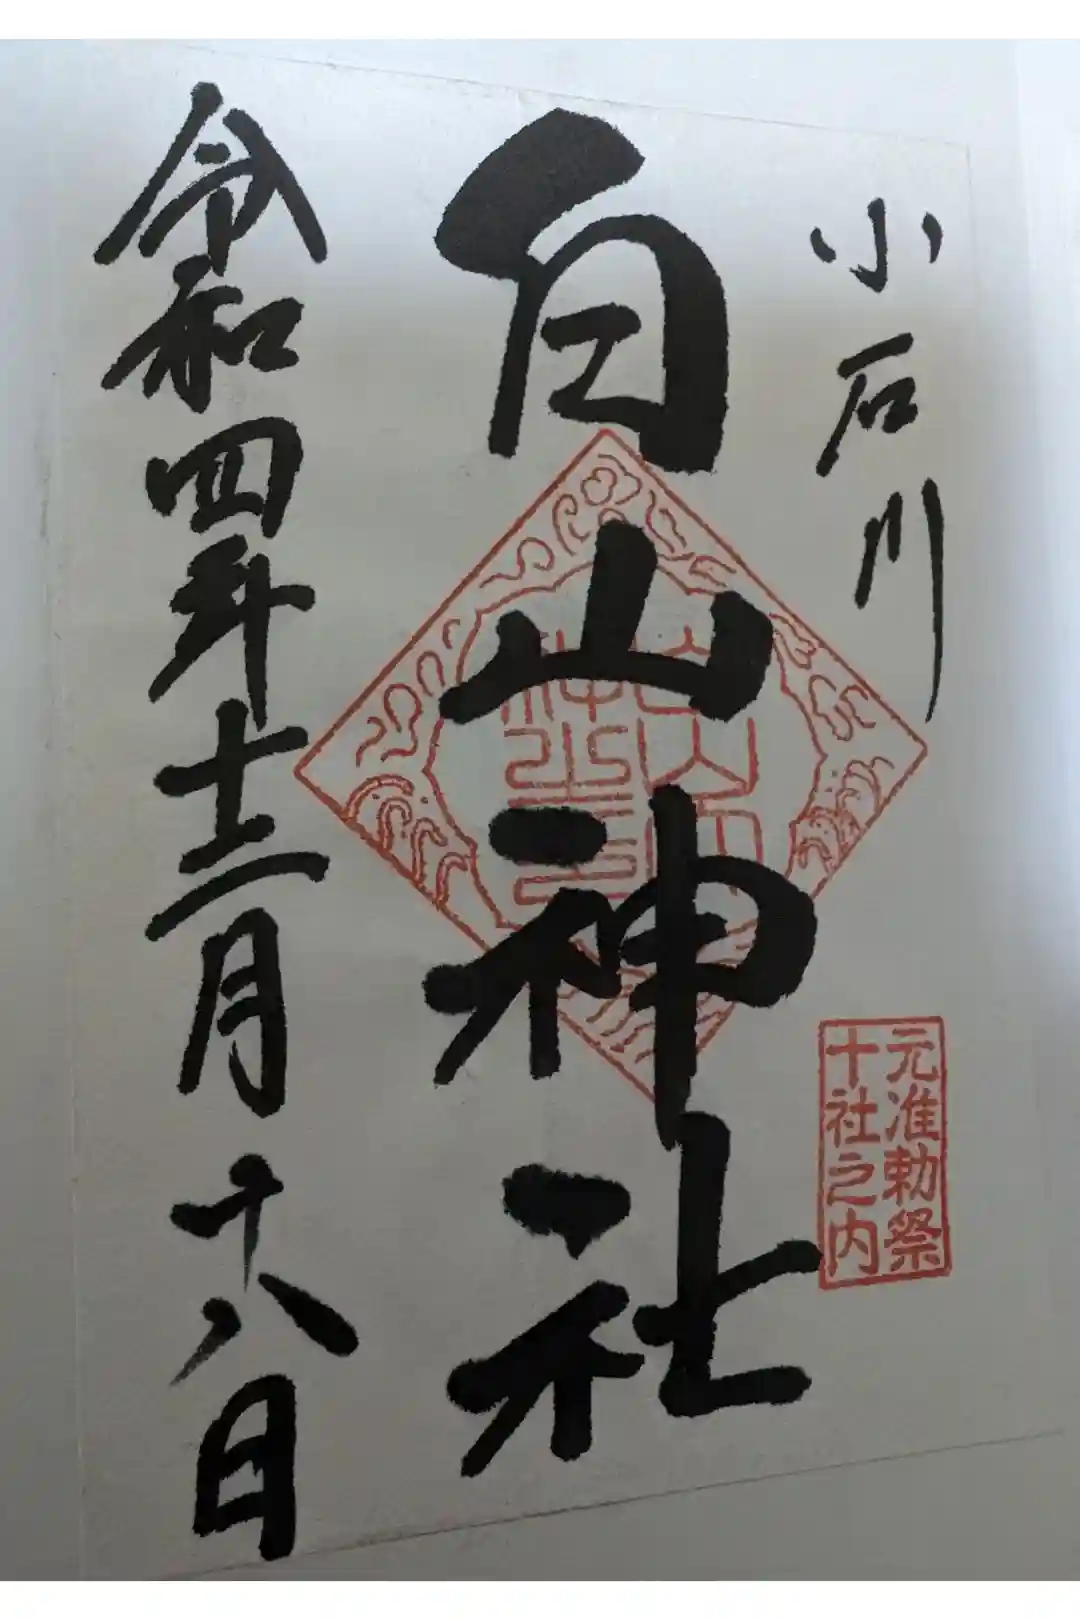 小石川
元准勅祭
十社之内
白山神社
令和四年十二月十八日